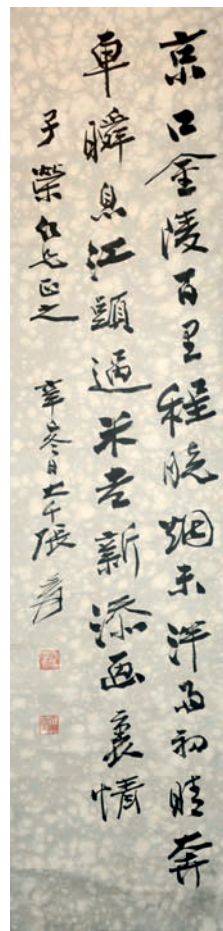 京口金陵百里程晓烟未泮雨初晴奔
車瞬息江頭過米老新添画裏情
子榮仁兄正之 辛冬日大千張爰